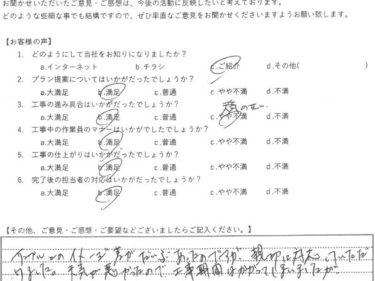 お聞かせいただいたご意見・ご感想は、今後の活動に反映したいと考えております。
どのような些細な事でも結構ですので、ぜひ率直なご意見をお聞かせくださいますようお願い致します。
【お客様の声】
1. どのようにして当社をお知りになりましたか?
a.インターネット b.チラシ c.ご紹介 d.その他( )
2. プラン提案についてはいかがだったでしょうか?
a.大満足 b.満足 c.普通 c.やや不満 d.不満
3. 工事の進み具合はいかがだったでしょうか?
a.大満足 b.満足 c.普通 c.やや不満 d.不満
4. 工事中の作業員のマナーはいかがでしたでしょうか?
a.大満足 b.満足 c.普通 c.やや不満 d.不満
5. 工事の仕上がりはいかがだったでしょうか?
a.大満足 b.満足 c.普通 c.やや不満 d.不満
6. 完了後の担当者の対応はいかがだったでしょうか?
a.大満足 b.満足 c.普通 c.やや不満 d.不満
【その他、ご意見・ご感想・ご要望などございましたらご記入ください。】
サンプルとのイメージ差がだいぶあったのですが、親切に対応していただ
けました。天気が悪かったので工事期間はかかってしまいましたが